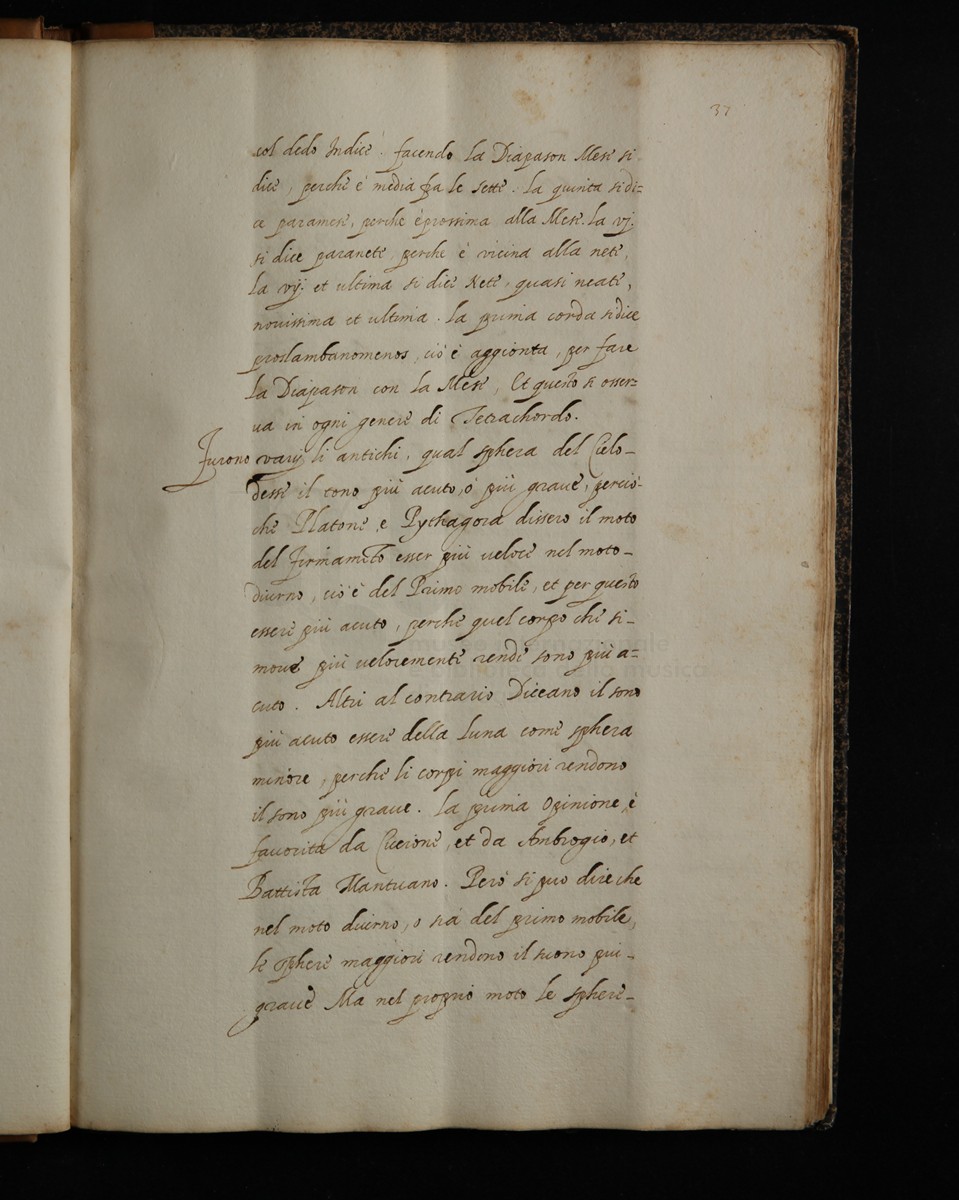 37
col dedo Indice. facendo la Diapason Mese si
dice, perche è media fra le sette. la quinta si di=
ce paramese, perche è prossima alla Mese. la vj.
si dice paranete, perche è vicina alla nete,
la vij. et ultima si dice Nete, quasi neate,
nouissima et ultima. la prima corda si dice
proslambanomenos, ciò è aggionta, per fare
la Diapason con la Mese, Et questo si osser=
ua in ogni genere di Tetrachordo.
Furono varij li antichi, qual sphera del Cielo-
desse il tono più acuto, ò più graue, perciò-
che Platone, e Pythagora dissero il moto
del firmamēto esser più veloce nel moto-
diurno, ciò è del Primo mobile, et per questo
essere più acuto, perche quel corpo che si-
moue più velocemente rende sono più a=
cuto. Altri al contrario Diceano il sono
più acuto essere della Luna come sphera
minore, perche li corpi maggiori rendono
il sono più graue. La prima Opinione è
fauorita da Cicerone, et da Ambrogio, et
Battista Mantuano. Però si puo dire che
nel moto diurno, o sia del primo mobile,
le sphere maggiori rendono il suono più-
graue Ma nel proprio moto le sphere-